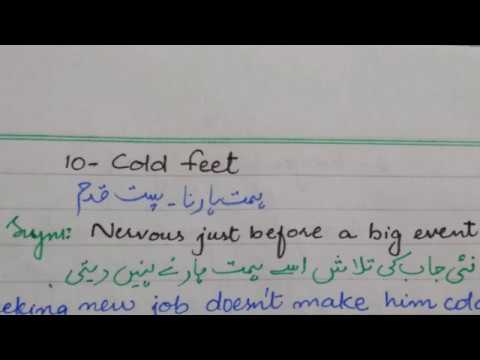 10- Cold feet
ہمت ہارنا - پست قدم
Syn: Nervous just before a big event
نئی جاب کی تلاش اسے ہمت ہارنے نہیں دیتی.
eking new job doesn't make him cold